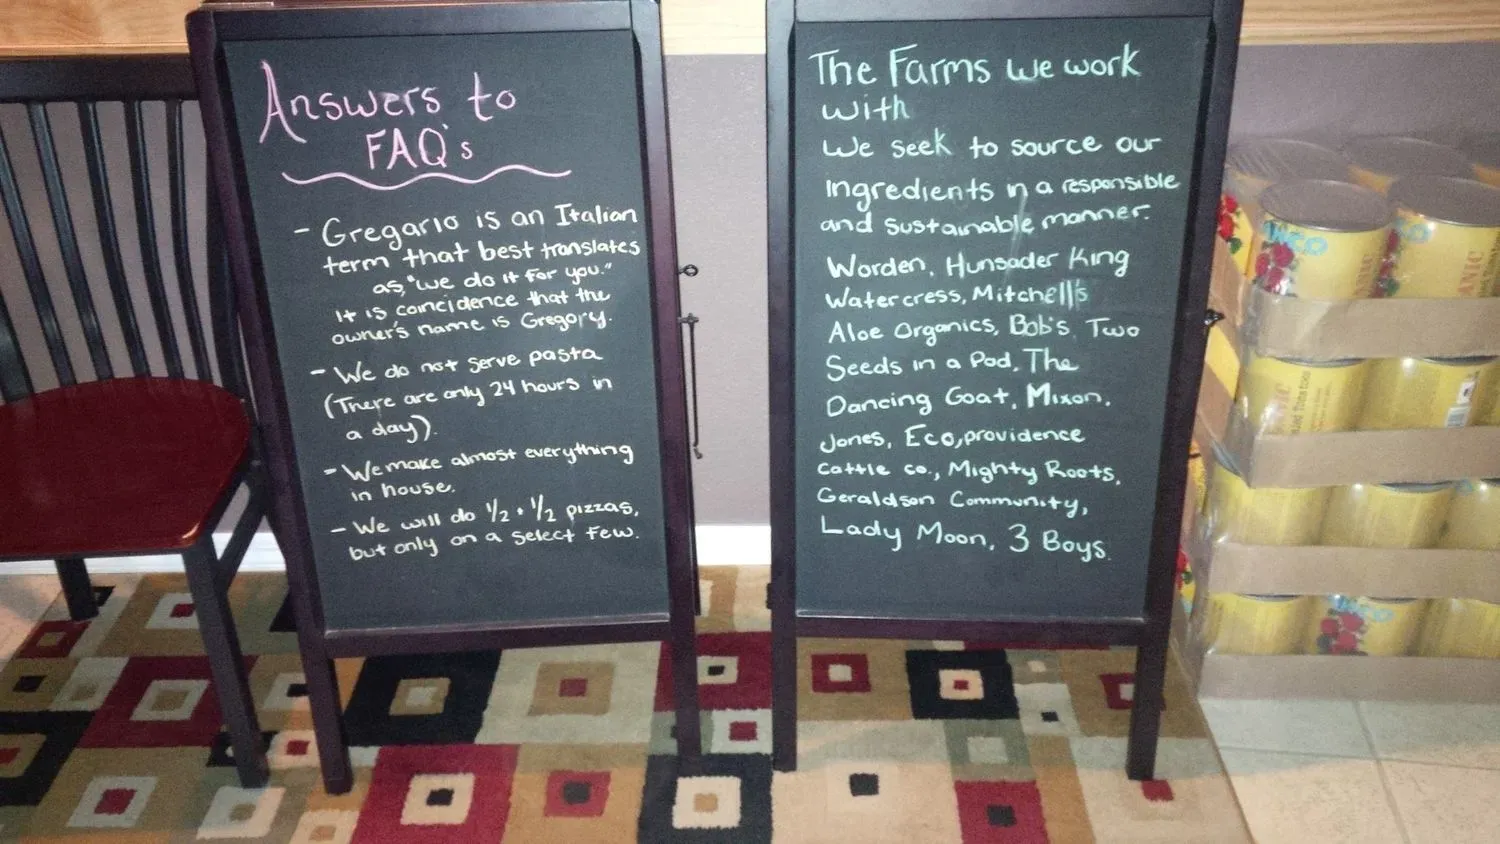 Answers to
FAQ's
- Gregario is an Italian
term that best translates
as, "we do it for you."
it is coincidence that the
owner's name is Gregory.
- We do not serve pasta
(There are only 24 hours in
a day).
- We make almost everything
in house.
- We will do 1/2 + 1/2 pizzas,
but only on a select few.
The Farms we work
with
We seek to source our
Ingredients in a responsible
and sustainable manner.
Worden, Hunsader King
Watercress, Mitchell's
Aloe Organics, Bob's, Two
Seeds in a Pod, The
Dancing Goat, Mixon,
Jones, Eco, providence
cattle co., Mighty Roots,
Geraldson Community,
Lady Moon, 3 Boys.